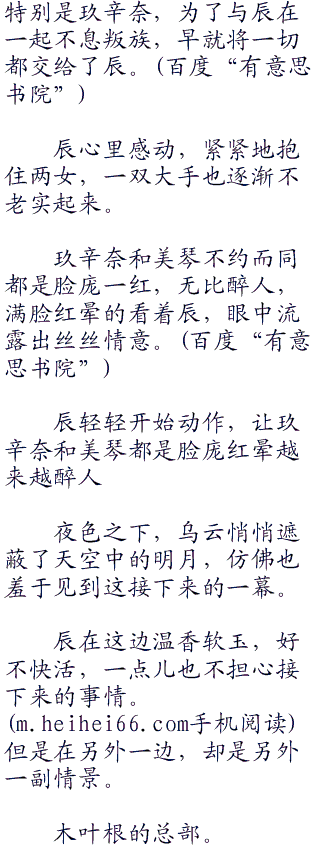 特别是玖辛奈，为了与辰在
一起不息叛族，早就将一切
都交给了辰。(百度“有意思
书院”)
辰心里感动，紧紧地抱
住两女，一双大手也逐渐不
老实起来。
玖辛奈和美琴不约而同
都是脸庞一红，无比醉人，
满脸红晕的看着辰，眼中流
露出丝丝情意。(百度“有意
思书院”)
辰轻轻开始动作，让玖
辛奈和美琴都是脸庞红晕越
来越醉人
夜色之下，乌云悄悄遮
蔽了天空中的明月，仿佛也
羞于见到这接下来的一幕。
辰在这边温香软玉，好
不快活，一点儿也不担心接
下来的事情。
(m.heihei66.com手机阅读)
但是在另外一边，却是另外
一副情景。
木叶根的总部。